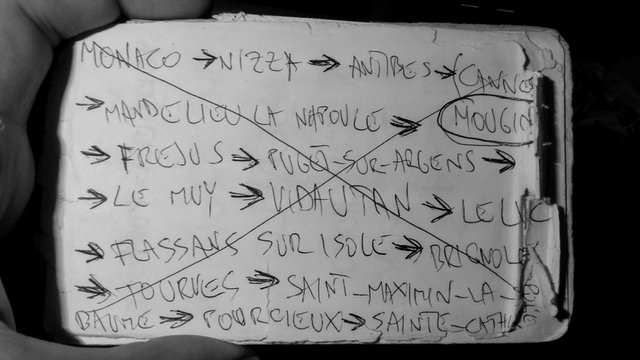 MONACO → NIZZA → ANTIBES → (CANNE
→ MANDELIEU LA NAPOULE → MOUGIN
→ FREJUS → PUGET-SUR-ARGENS →
→ LE MUY → VIDAUTAN → LE LUC
→ FLASSANS SUR ISOLE → BRIGNOLE
→ TOURVES → SAINT-MAXIMIN-LA-
BAUME → POURCIEUX → SAINTE-CATH